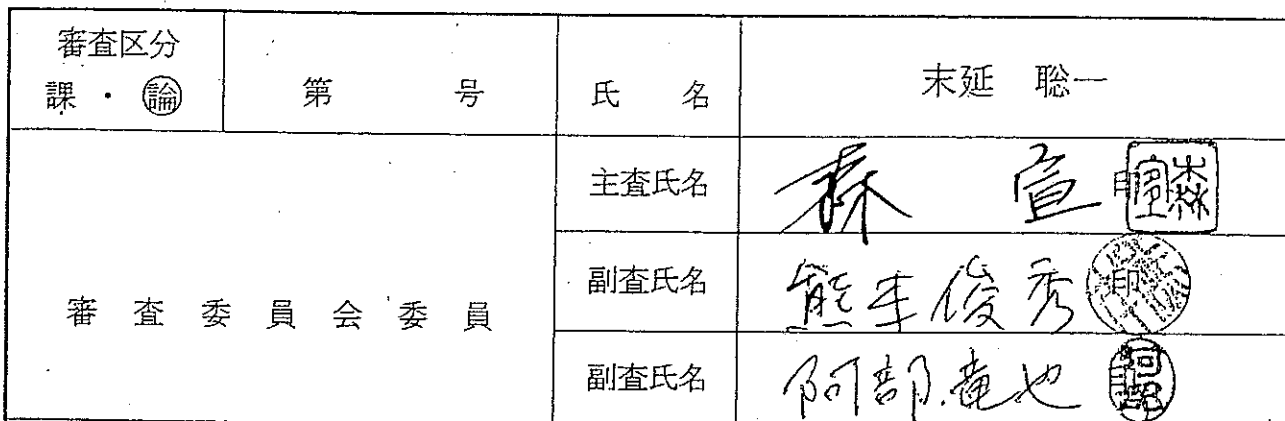 審査区分
課・論
第 号
氏 名
末延 聡一
審査委員会委員
主査氏名
森 宣 印
副査氏名
熊本俊秀 印
副査氏名
阿部竜也